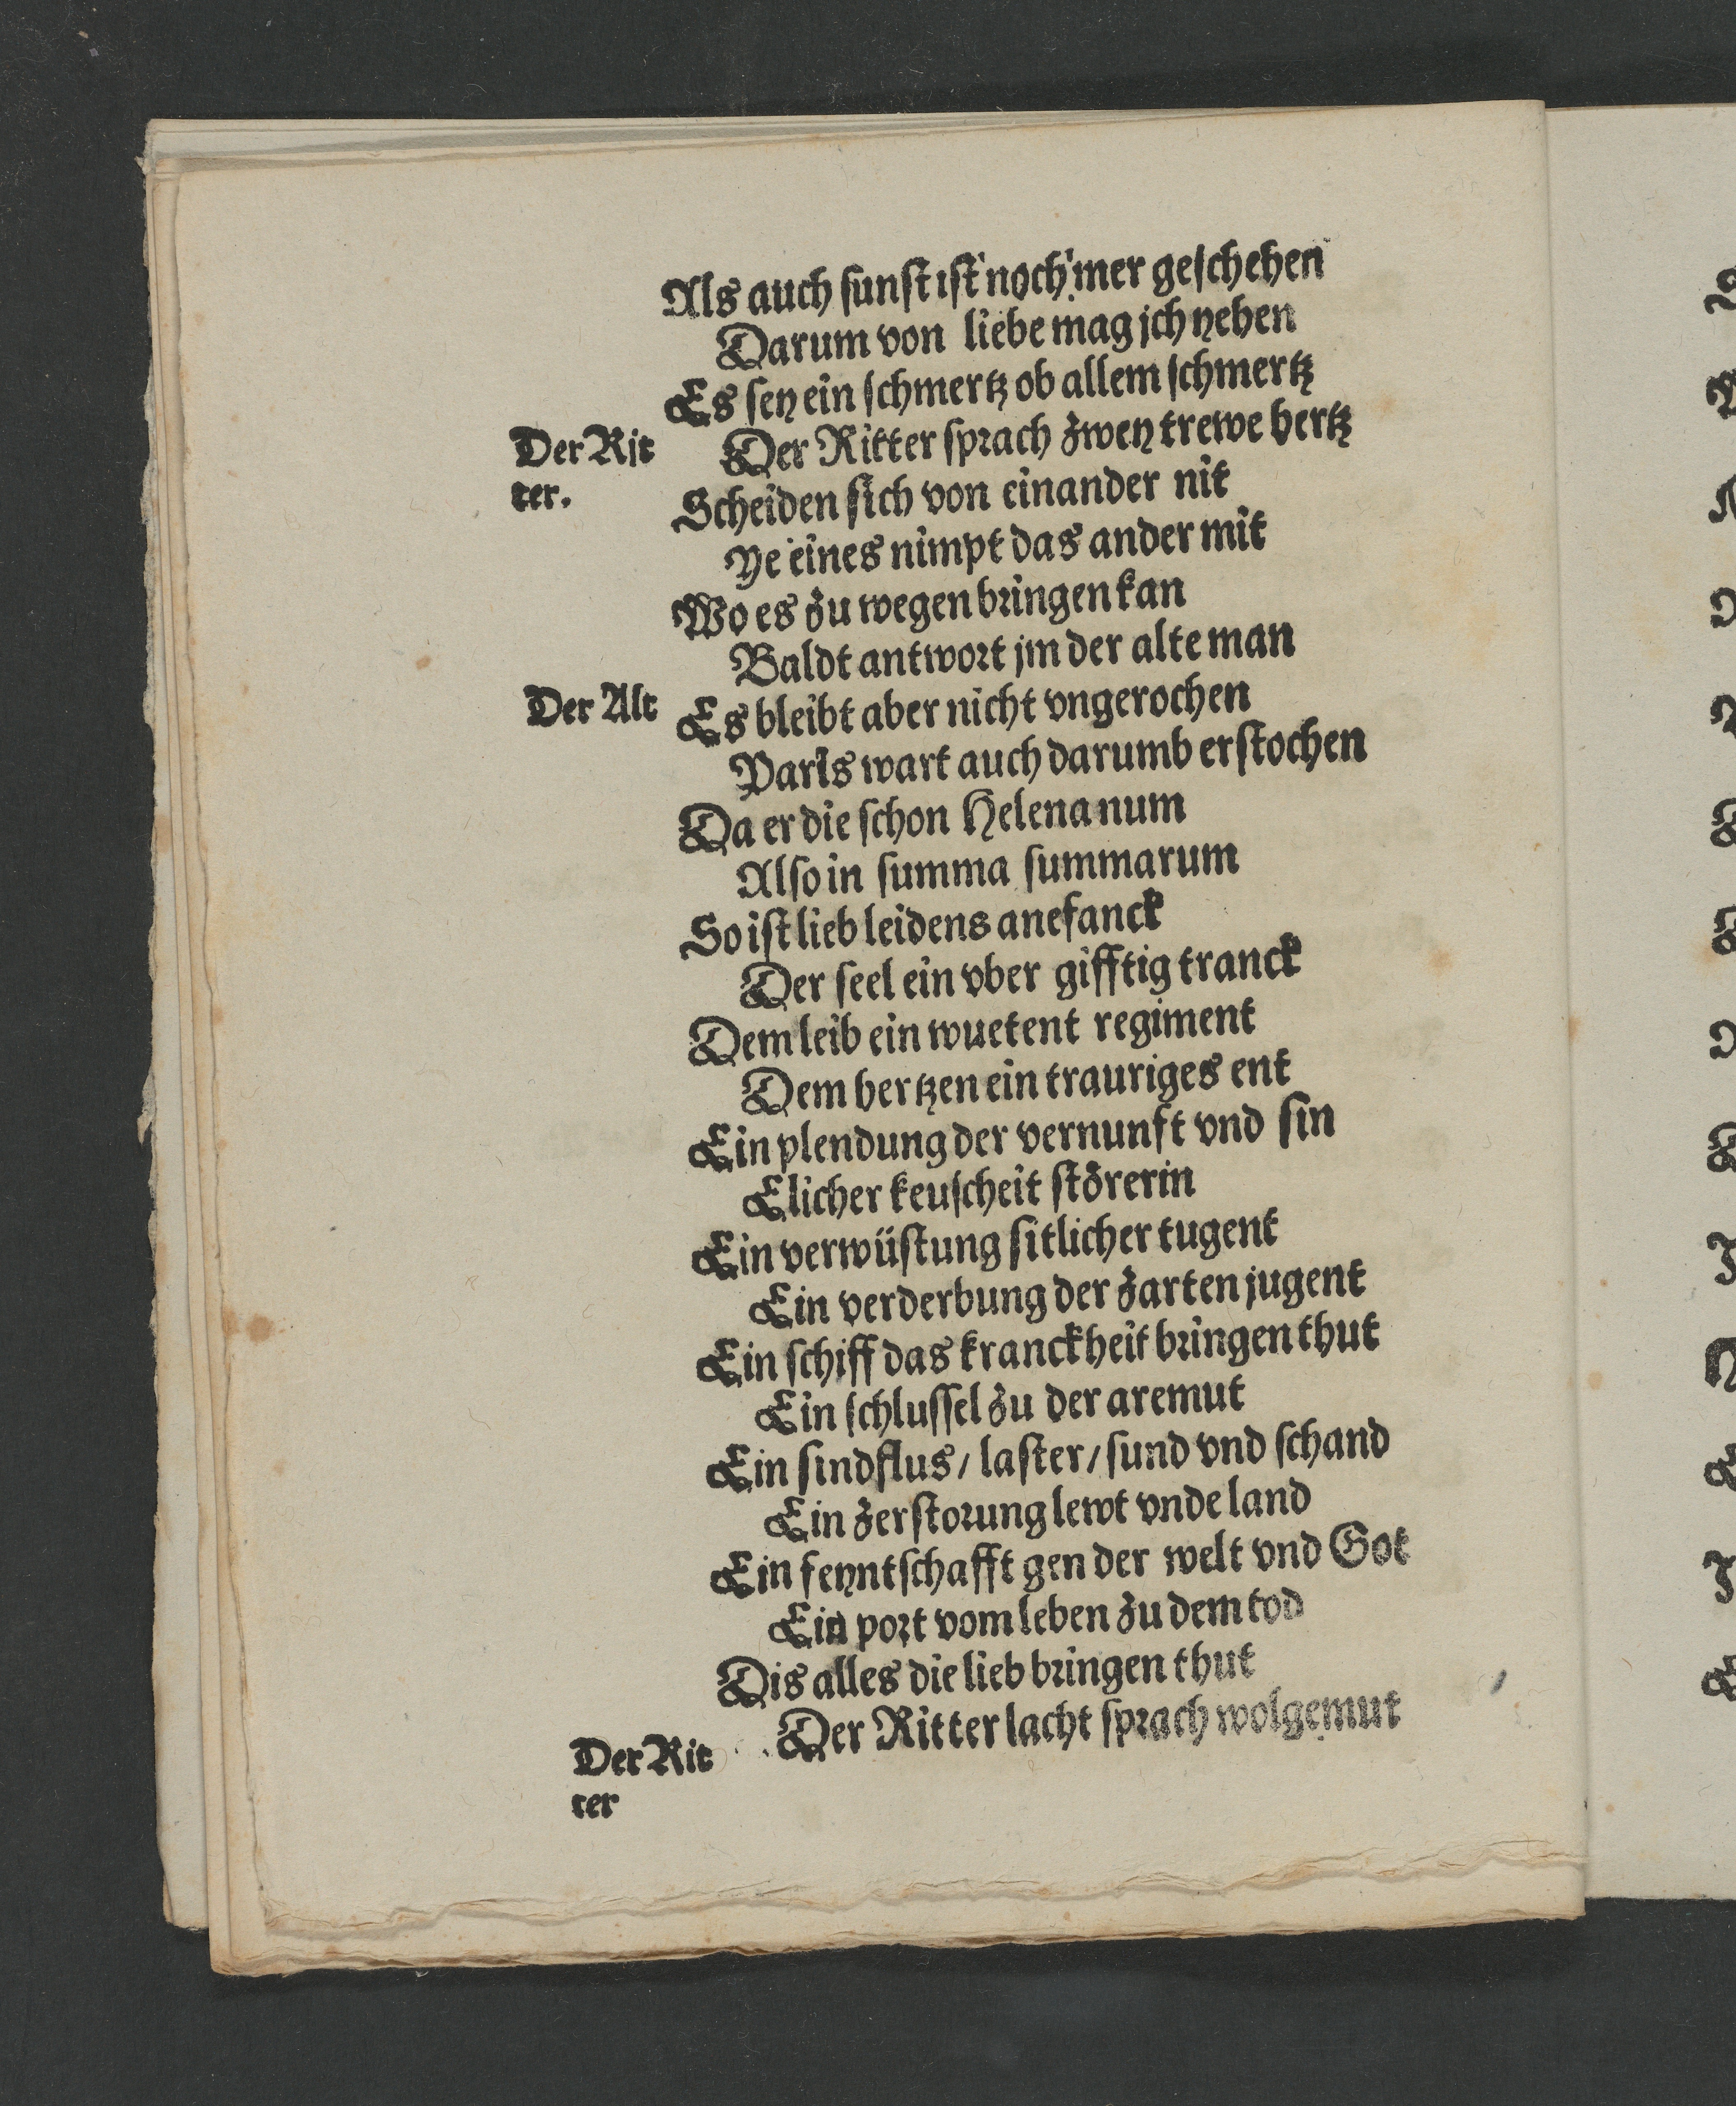 Als auch sunst ist noch mer geschehen
Darum von liebe mag jch yehen
Es sey ein schmertz ob allem schmertz
Der Rit
Der Ritter sprach zwey trewe hertz
ter.
Scheiden sich von einander nit
Ye eines nimpt das ander mit
Wo es zu wegen bringen kan
Baldt antwort jm der alte man
Der Alt
Es bleibt aber nicht vngerochen
Paris wart auch darumb erstochen
Da er die schon Helena num
Also in summa summarum
So ist lieb leidens anefanck
Der seel ein vber gifftig tranck
Dem leib ein wuetent regiment
Dem hertzen ein trauriges ent
Ein plendung der vernunft vnd sin
Elicher keuscheit störerin
Ein verwüstung sitlicher tugent
Ein verderbung der zarten jugent
Ein schiff das kranckheit bringen thut
Ein schlussel zu der aremut
Ein sindflus / laster / sund vnd schand
Ein zerstorung lewt vnde land
Ein feyntschafft gen der welt vnd Got
Ein port vom leben zu dem tod
Dis alles die lieb bringen thut
Der Rit
Der Ritter lacht sprach wolgemut
ter